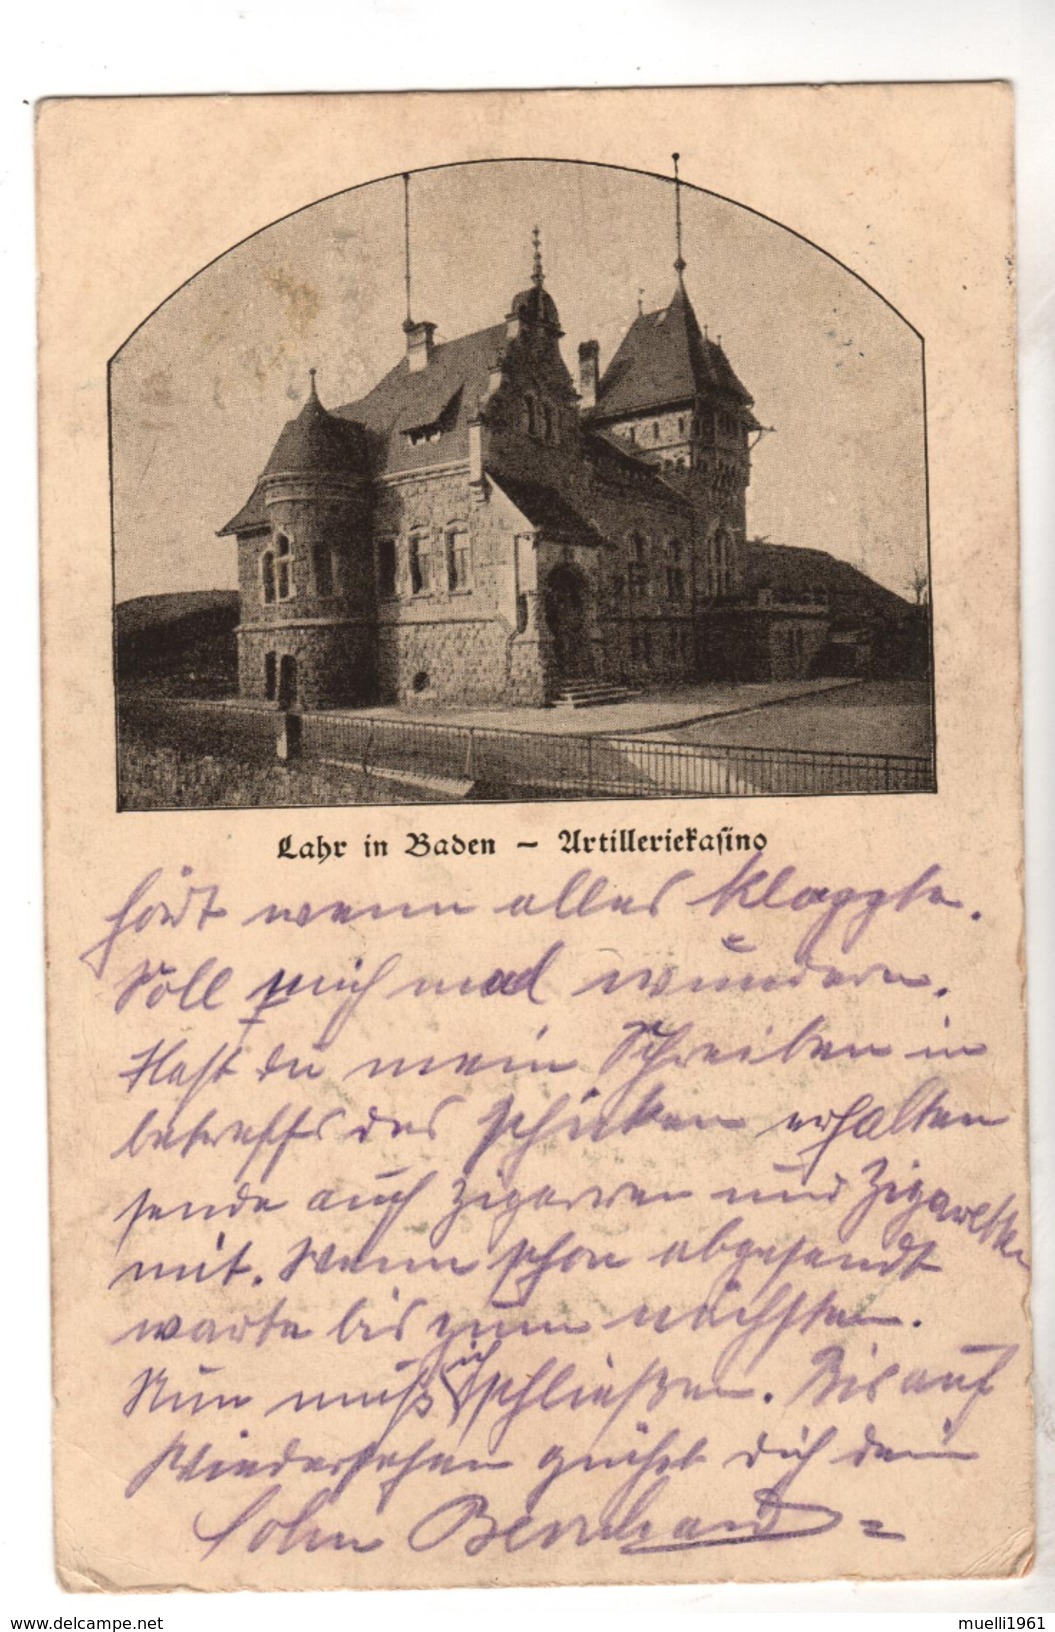 Lahr in Baden – Artilleriekasino
hört wenn alles klappte.
Soll mich mal wundern.
Hast du mein Schreiben in
betreffs des schicken erhalten
sende auch Zigarren und Zigaretten
mit. Wenn schon abgesendt
warte bis zum nächsten.
Nun muß ich schließen. Bis auf
Wiedersehen grüßt dich dein
Sohn Bernhard
www.delcampe.net
muelli1961